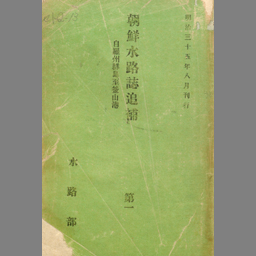 明治三十五年八月刊行
朝鮮水路誌追補
自羅州群島至釜山港
第一
水路部